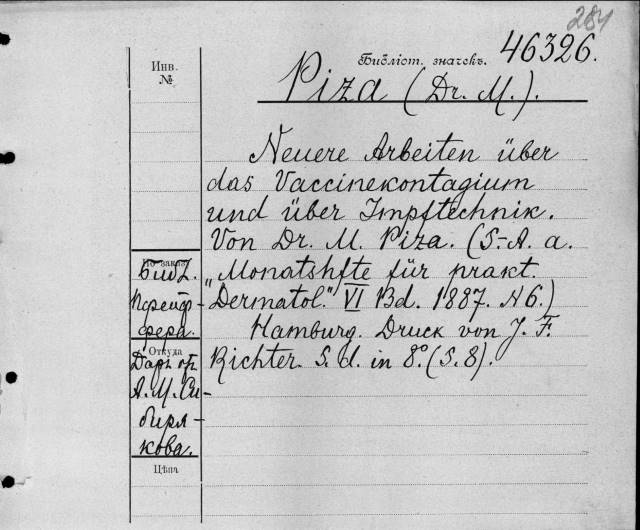 284
Библіот. значекъ. 46326.
Инв.
№
Piza (Dr. M.).
Neuere Arbeiten über
das Vaccinekontagium
und über Impftechnik.
Von Dr. M. Piza. (S.-A. a.
„Monatshfte für prakt.
Dermatol." VI Bd. 1887. N6.)
Hamburg. Druck von J. F.
Richter. S. d. in 8º. (S. 8).
№ заказа
Библ.
Пфейф-
фера.
Откуда
Даръ
А. М. Си-
биря-
кова.
Цѣна